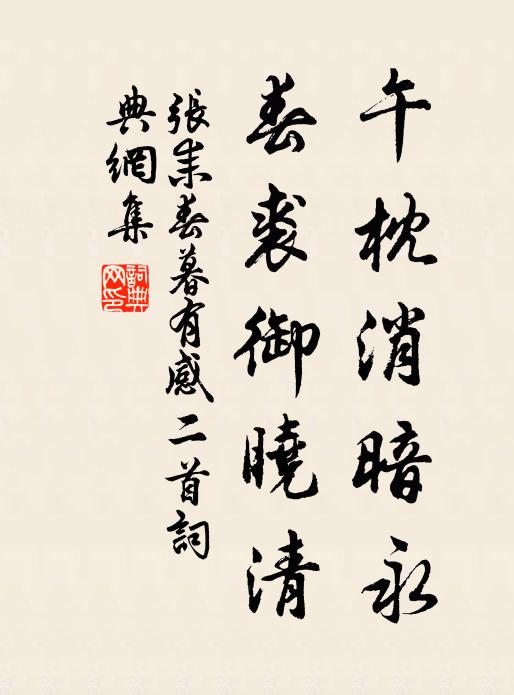 午枕消暗永
春裘御曉清
張耒春暮有感二首詞
典網集
詞典
网印